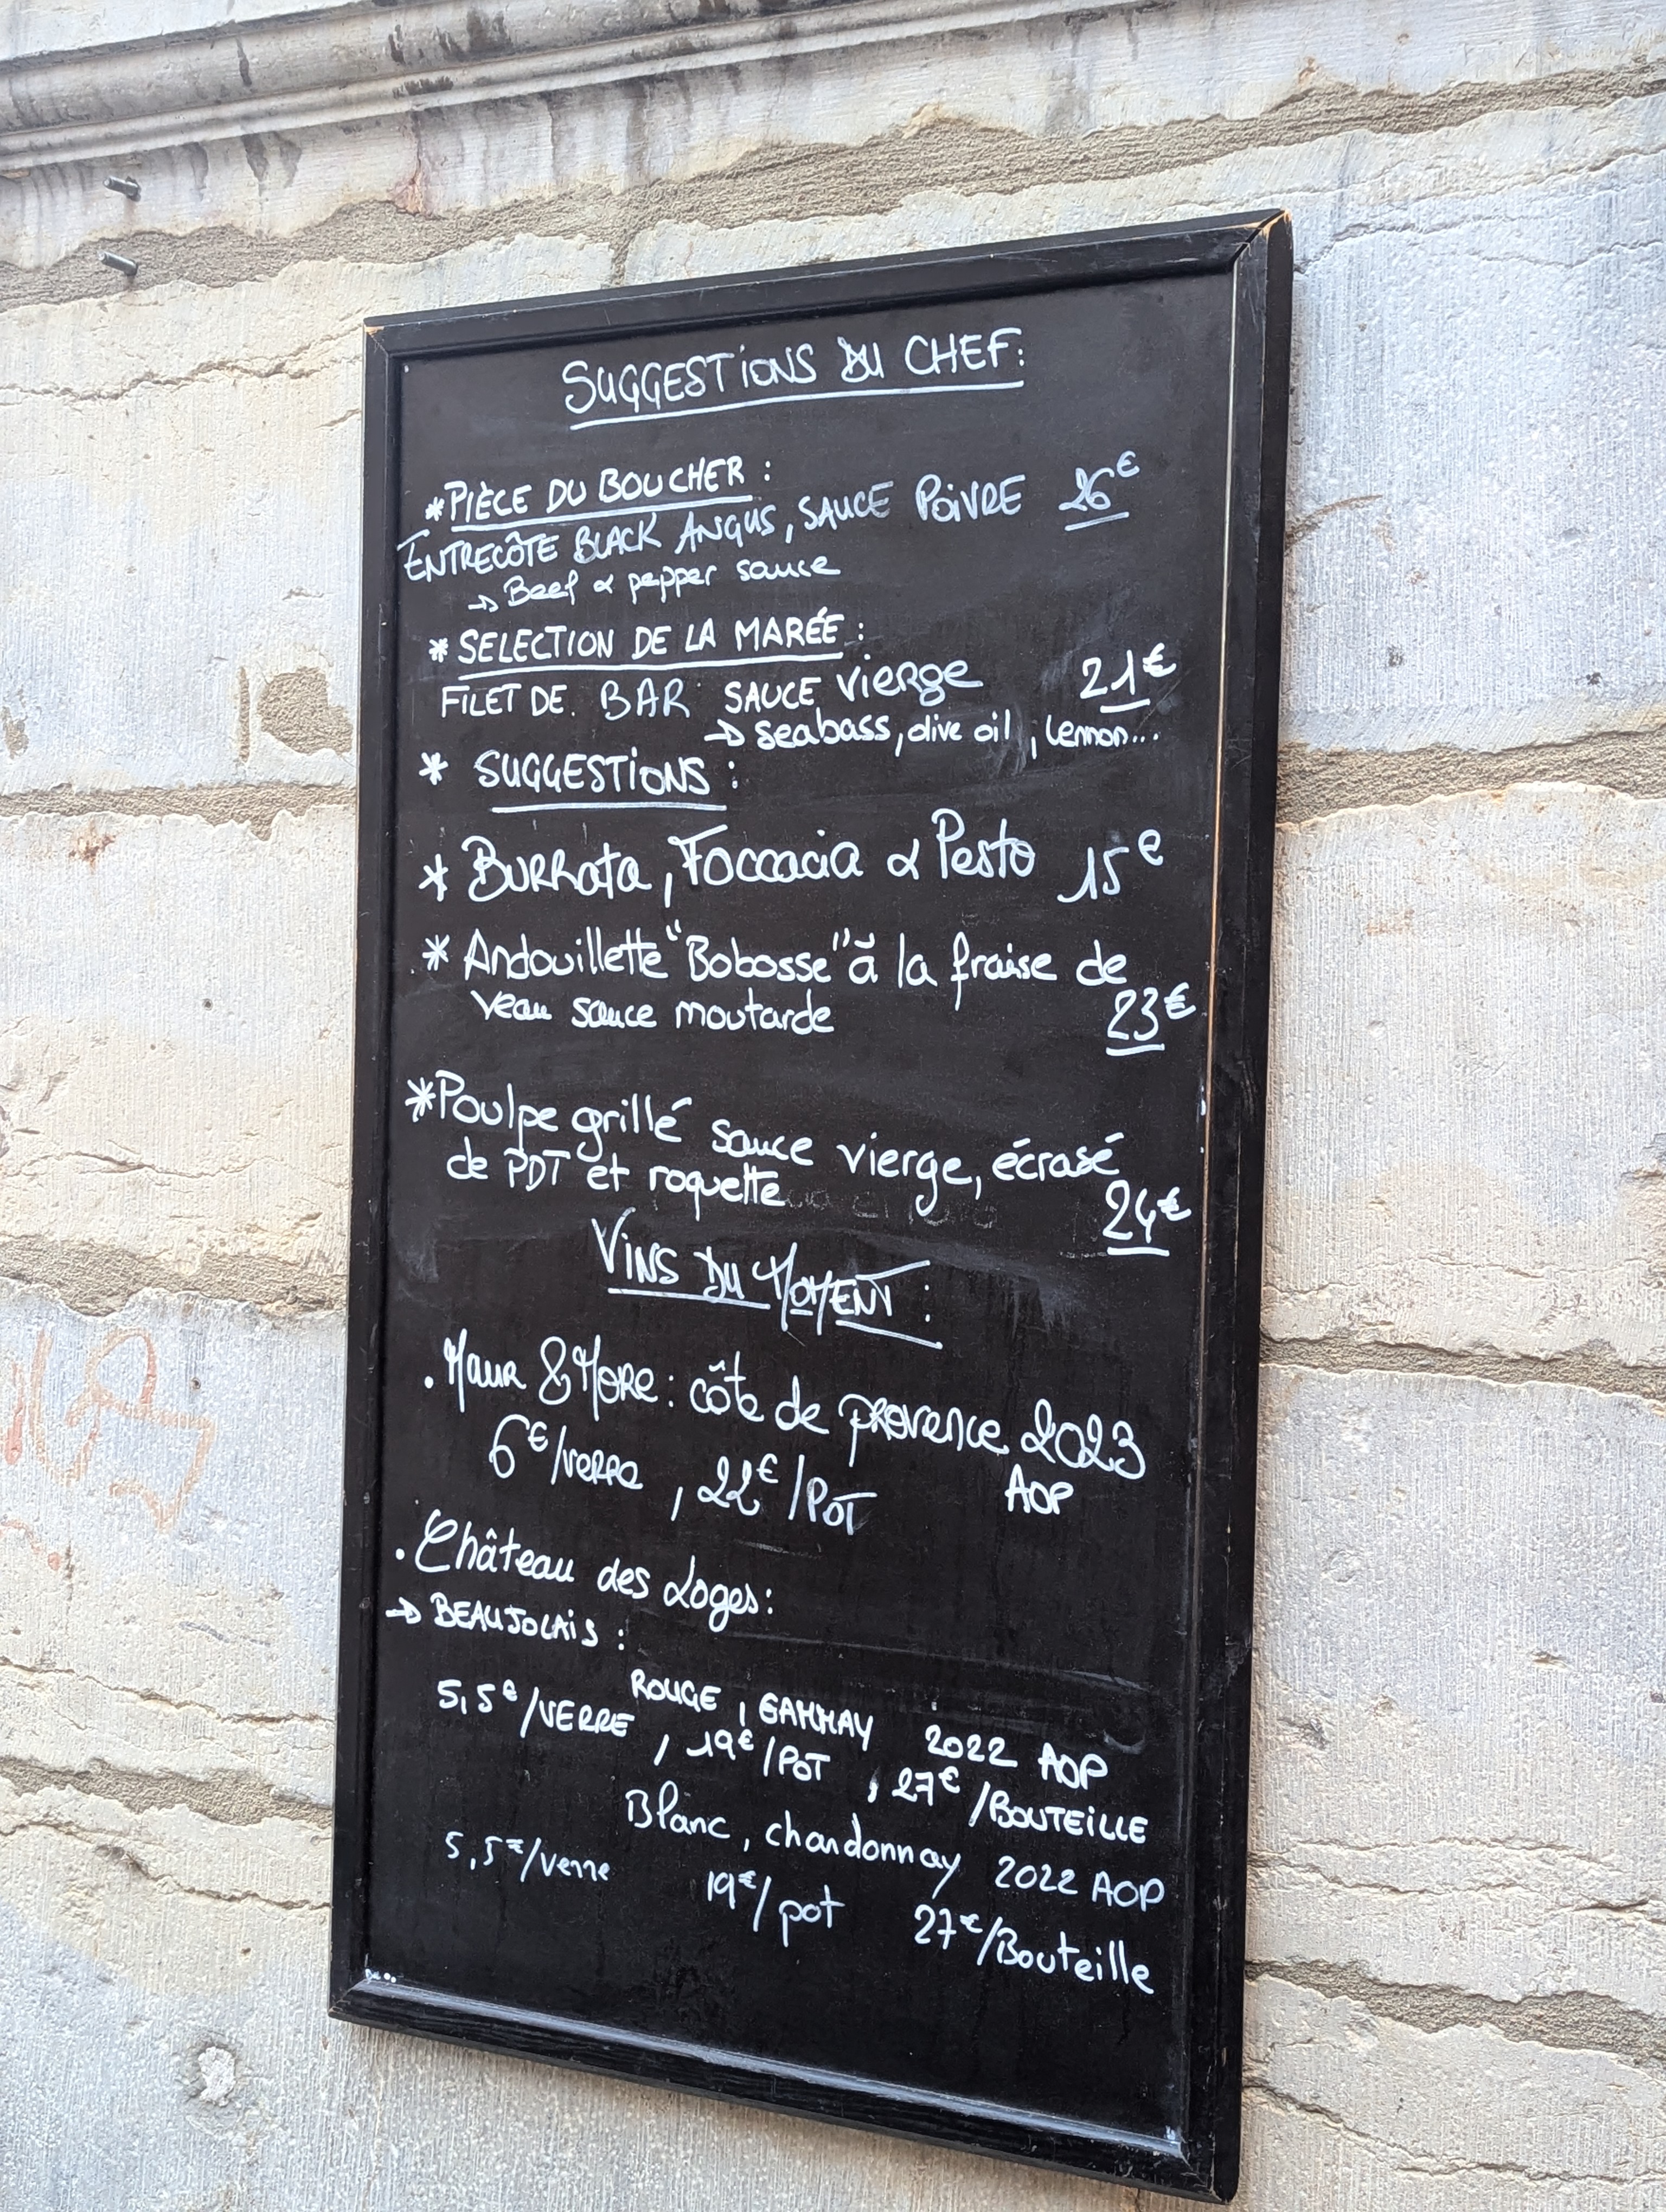 SUGGESTIONS DU CHEF:
* PIÈCE DU BOUCHER :
ENTRECÔTE BLACK ANGUS, SAUCE POIVRE 26€
→ Beef & pepper sauce
* SELECTION DE LA MARÉE :
FILET DE BAR SAUCE vierge 21€
→ seabass, olive oil, lemon...
* SUGGESTIONS :
* Burrata, Foccacia & Pesto 15€
* Andouillette "Bobosse" à la fraise de
veau sauce moutarde 23€
* Poulpe grillé sauce vierge, écrasé
de PDT et roquette 24€
VINS DU MOMENT :
. Maur & More : côte de provence 2023
6€/verre, 22€/POT AOP
. Château des Loges :
→ BEAUJOLAIS :
ROUGE, GAMMAY 2022 AOP
5,5€/VERRE, 19€/POT, 27€/BOUTEILLE
Blanc, chardonnay 2022 AOP
5,5€/verre 19€/pot 27€/Bouteille